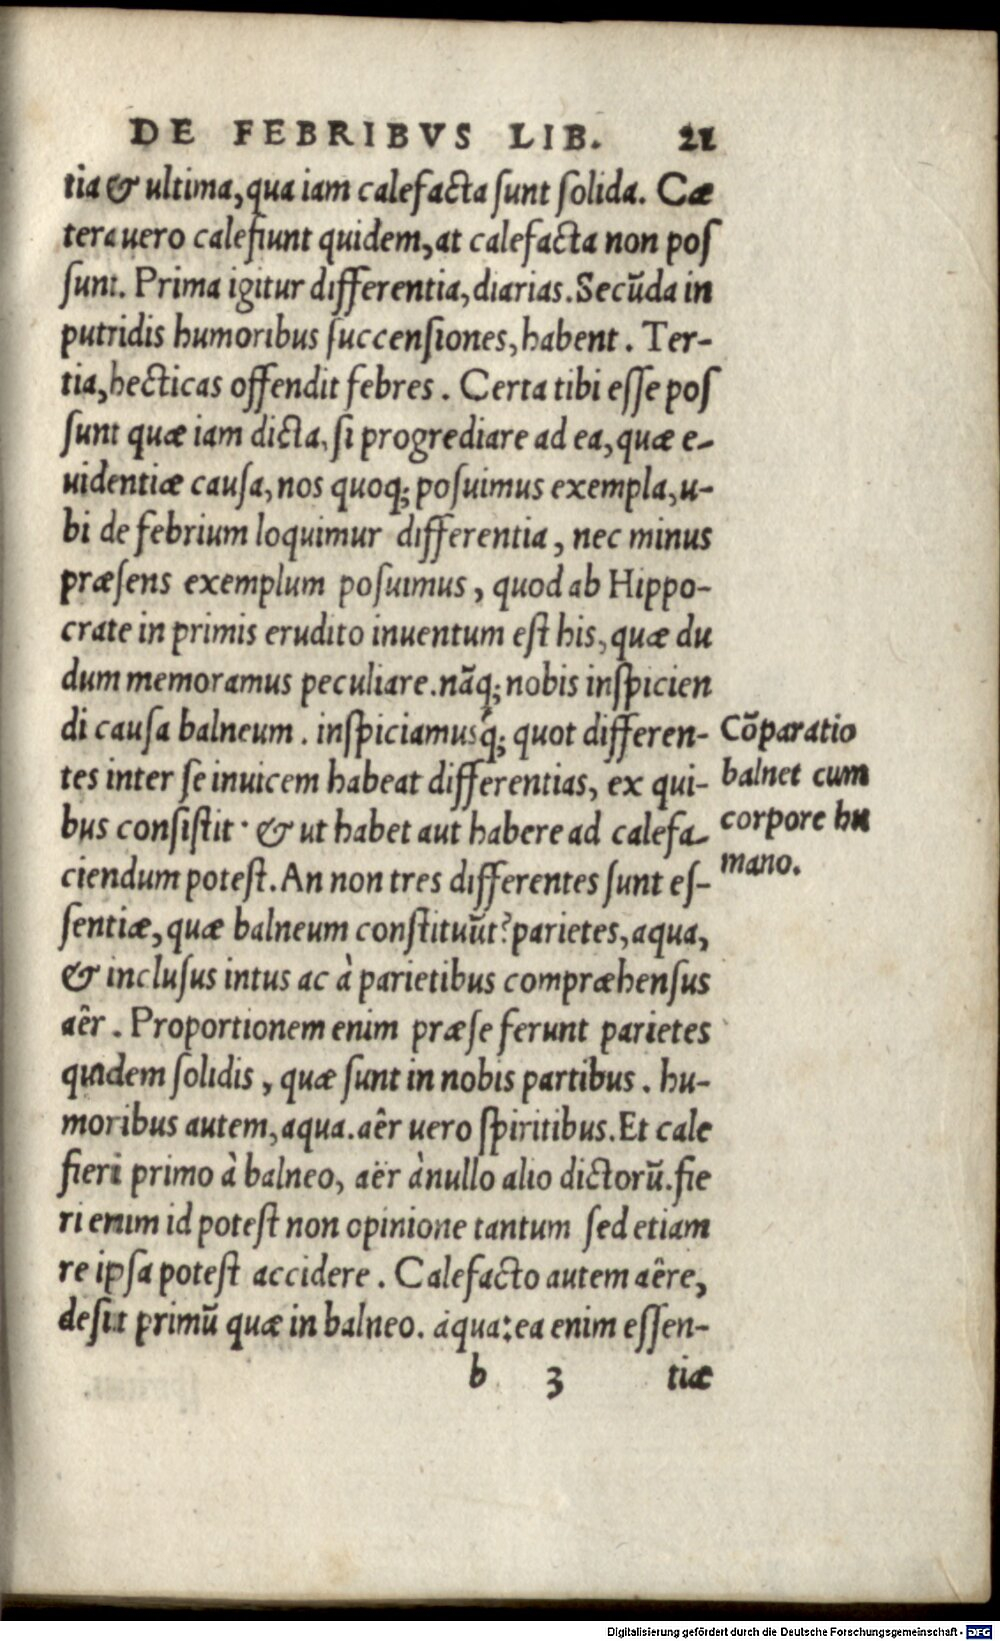 DE FEBRIBVS LIB. 21
tia & ultima, qua iam calefacta sunt solida. Cæ
tera uero calefiunt quidem, at calefacta non pos
sunt. Prima igitur differentia, diarias. Secūda in
putridis humoribus succensiones, habent. Ter-
tia, hecticas offendit febres. Certa tibi esse pos
sunt quæ iam dicta, si progrediare ad ea, quæ e-
uidentiæ causa, nos quoq; posuimus exempla, u-
bi de febrium loquimur differentia, nec minus
præsens exemplum posuimus, quod ab Hippo-
crate in primis erudito inuentum est his, quæ du
dum memoramus peculiare. nāq; nobis inspicien
di causa balneum. inspiciamusq́; quot differen-
tes inter se inuicem habeat differentias, ex qui-
bus consistit· & ut habet aut habere ad calefa-
ciendum potest. An non tres differentes sunt es-
sentiæ, quæ balneum constituūt? parietes, aqua,
& inclusus intus ac à parietibus compræhensus
aêr. Proportionem enim præ se ferunt parietes
quidem solidis, quæ sunt in nobis partibus. hu-
moribus autem, aqua. aêr uero spiritibus. Et cale
fieri primo à balneo, aër à nullo alio dictorū. fie
ri enim id potest non opinione tantum sed etiam
re ipsa potest accidere. Calefacto autem aêre,
desut primū quæ in balneo. aqua: ea enim essen-
b 3 tiæ
Cōparatio
balnei cum
corpore hu
mano.
Digitalisierung gefördert durch die Deutsche Forschungsgemeinschaft - DFG